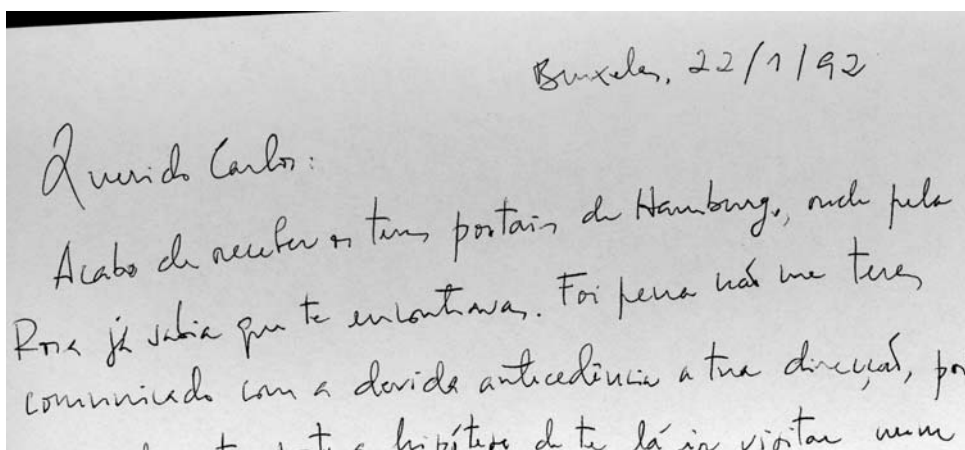 Bruxelas, 22/1/92
Querido Carlos:
Acabo de receber os teus postais de Hamburgo, onde pela
Rosa já sabia que te encontravas. Foi pena não me teres
comunicado com a devida antecedência a tua direcção, por
hipótese de te lá ir visitar num